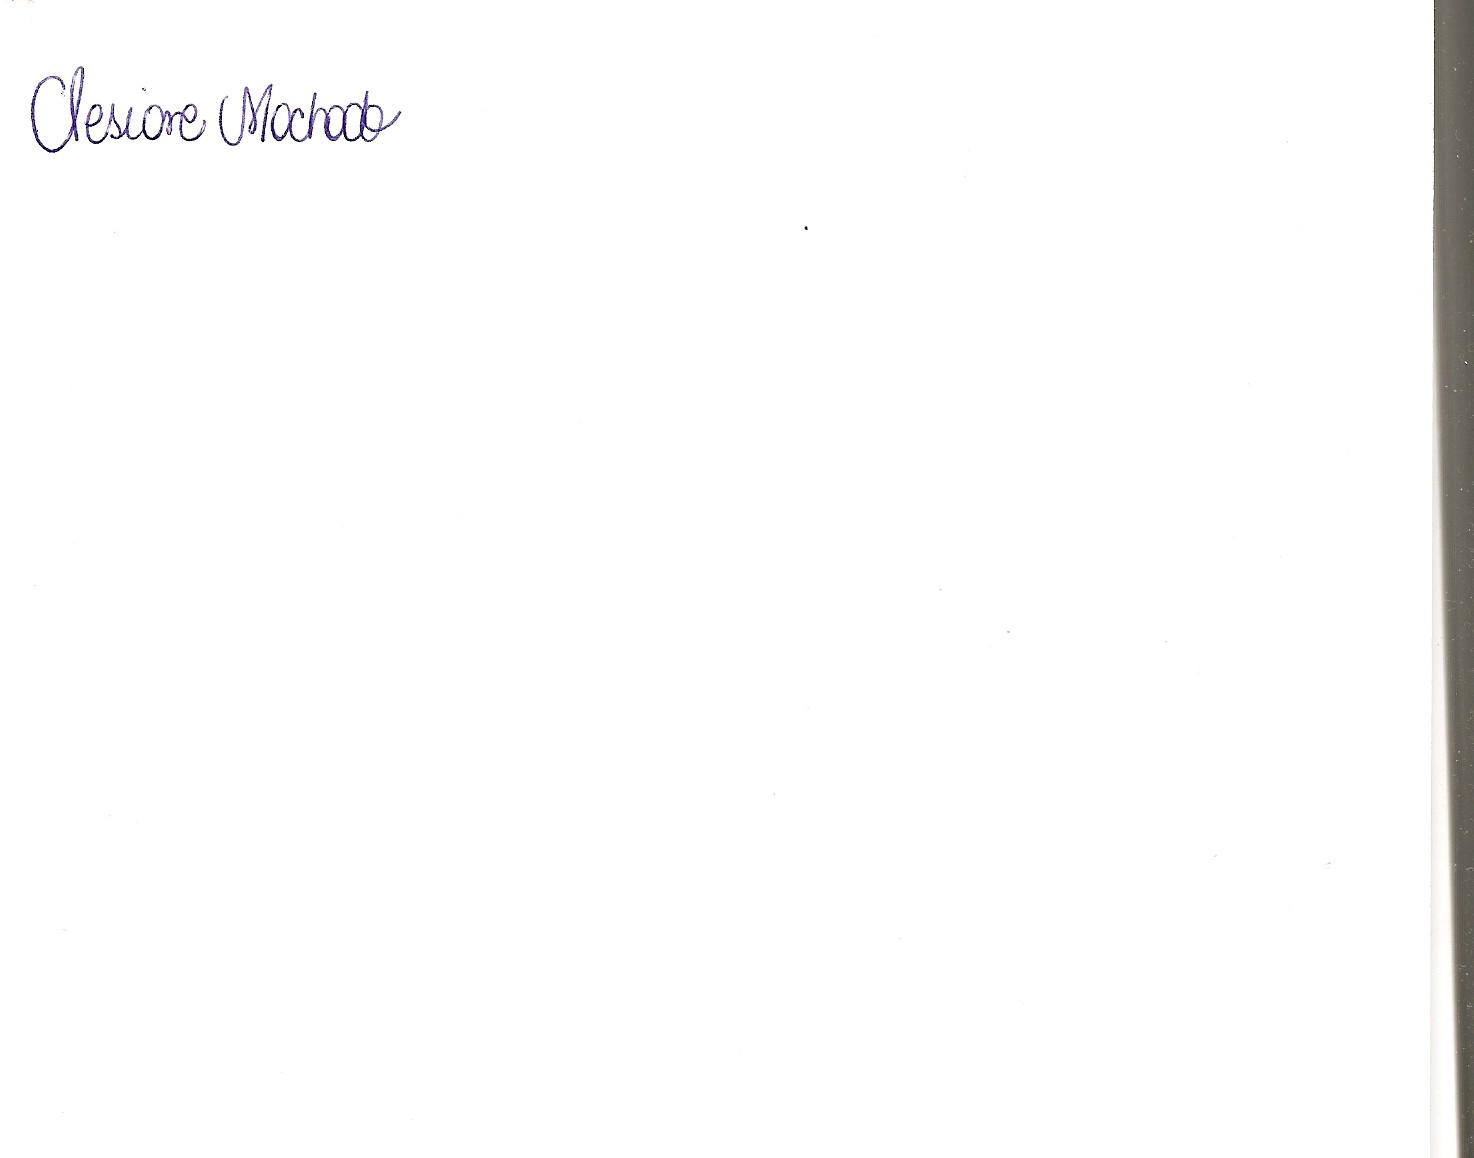 Clesiane Machado